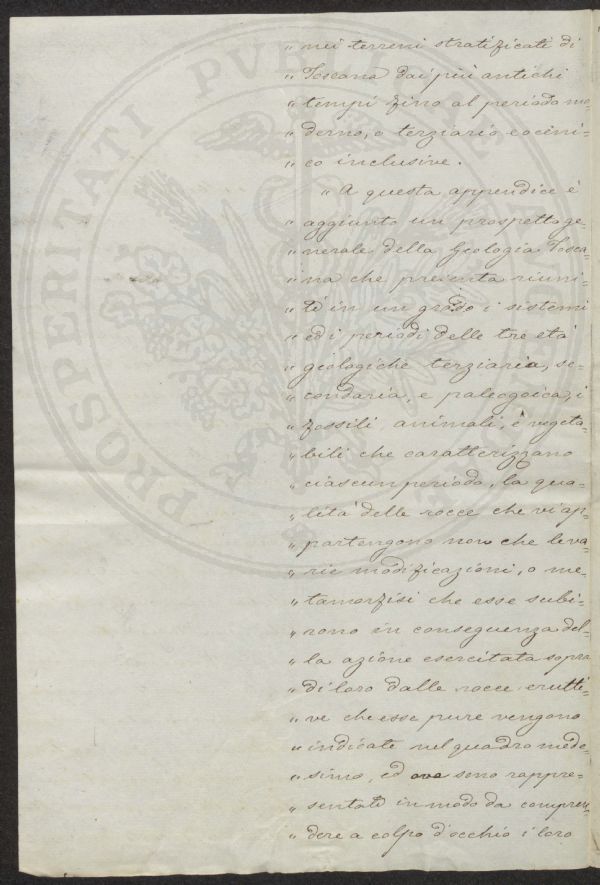 „ nei terreni stratificati di
„ Toscana dai più antichi
„ tempi fino al periodo mo-
„ derno, o terziario eoceni=
„ co inclusive.
„ A questa appendice è
„ aggiunto un prospetto ge=
„ nerale della Geologia Tosca=
„ na che presenta riuni=
„ ti in un grado i sistemi
„ ed i periodi delle tre età
„ geologiche terziaria, se=
„ condaria, e paleozoica, i
„ fossili animali, e vegeta=
„ bili che caratterizzano
„ ciascun periodo, la qua=
„ lità delle rocce che vi ap=
„ partengono non che le va=
„ rie modificazioni, o me=
„ tamorfisi che esse subi=
„ rono in conseguenza del=
„ la azione esercitata sopra
„ di loro dalle rocce erutti=
„ ve che esse pure vengono
„ indicate nel quadro mede=
„ simo, ed ove sono rappre=
„ sentati in modo da compren=
„ dere a colpo d'occhio i loro
PROSPERITATI PVBLICAE